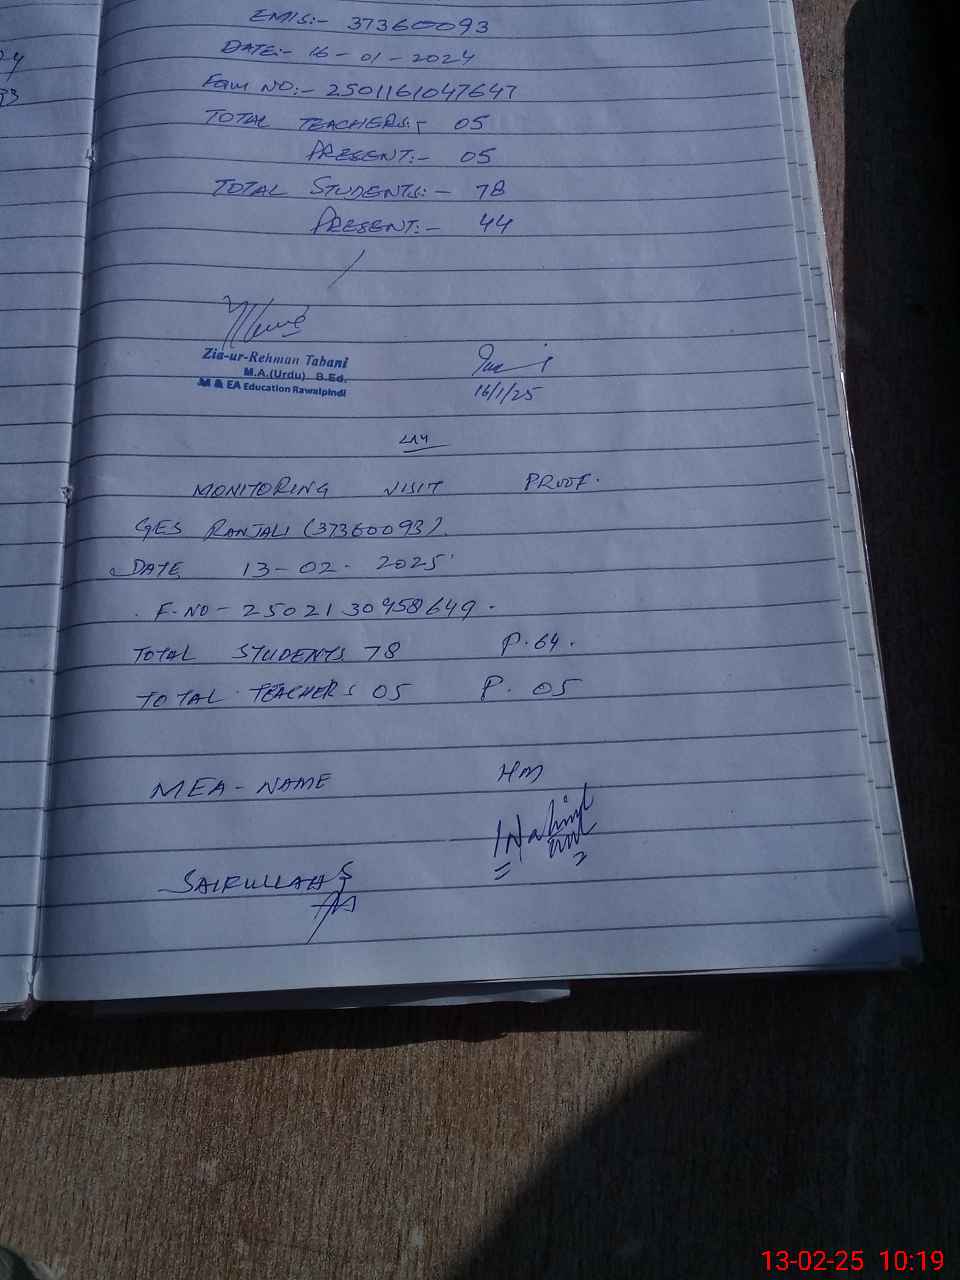 EMIS:- 37360093
DATE:- 16-01-2024
Form NO:- 2501161047647
TOTAL TEACHERS:- 05
PRESENT:- 05
TOTAL STUDENTS:- 78
PRESENT:- 44
Zia-ur-Rehman Tabani
M.A.(Urdu) B.Ed.
M & EA Education Rawalpindi
16/1/25
MONITORING VISIT PROOF.
GES RANJALI (37360093).
DATE 13-02-2025
F.NO - 2502130958649.
TOTAL STUDENTS 78 P.64.
TOTAL TEACHERS 05 P. 05
MEA-NAME HM
SAIFULLAH
13-02-25 10:19